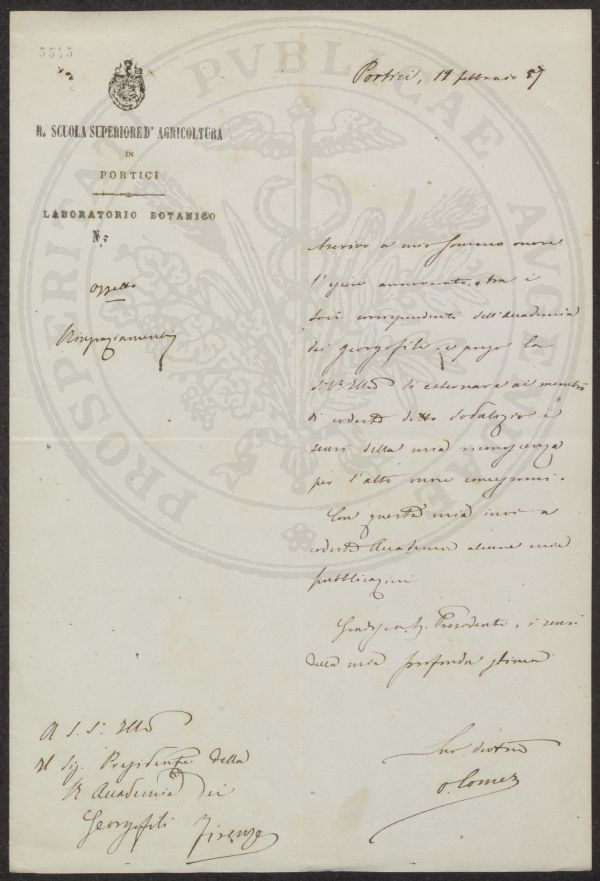 5545
Portici, 19 febbraio 87
R. SCUOLA SUPERIORE D'AGRICOLTURA
IN
PORTICI
LABORATORIO BOTANICO
N.
Oggetto
Ringraziamenti
Ascrivo a mio sommo onore
l'essere annoverato tra i
Socii corrispondenti dell'Accademia
dei Georgofili, e prego la
S. V. Ill.ma di esternare ai membri
di codesto dotto Sodalizio i
sensi della mia riconoscenza
per l'alto onore concessomi.
Con questa mia invio a
codesta Accademia alcune mie
pubblicazioni
Gradisca, Sig. Presidente, i sensi
della mia profonda stima
Suo devotmo
O. Comes
A S. S. Ill.ma
Il Sig. Presidente della
R. Accademia dei
Georgofili Firenze
PROSPERITATI PVBLICAE AVGENDAE